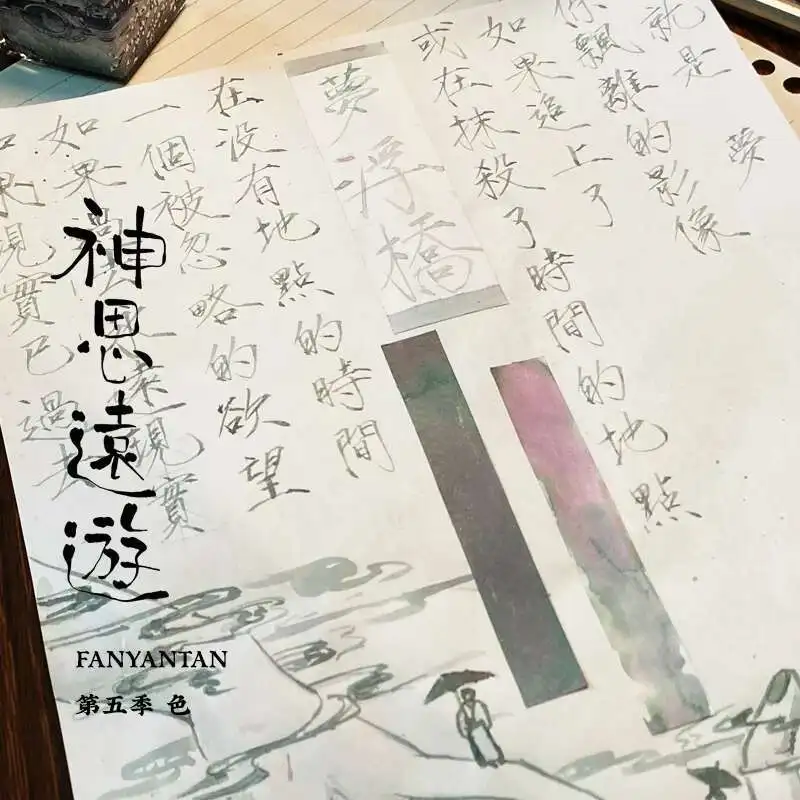 就是 夢
你飄離的影像
如果追上了
或在抹殺了時間的地點
夢浮橋
在沒有地點的時間
一個被忽略的欲望
如果 現實
果現實已過去
神思遠遊
FANYANTAN
第五季 色